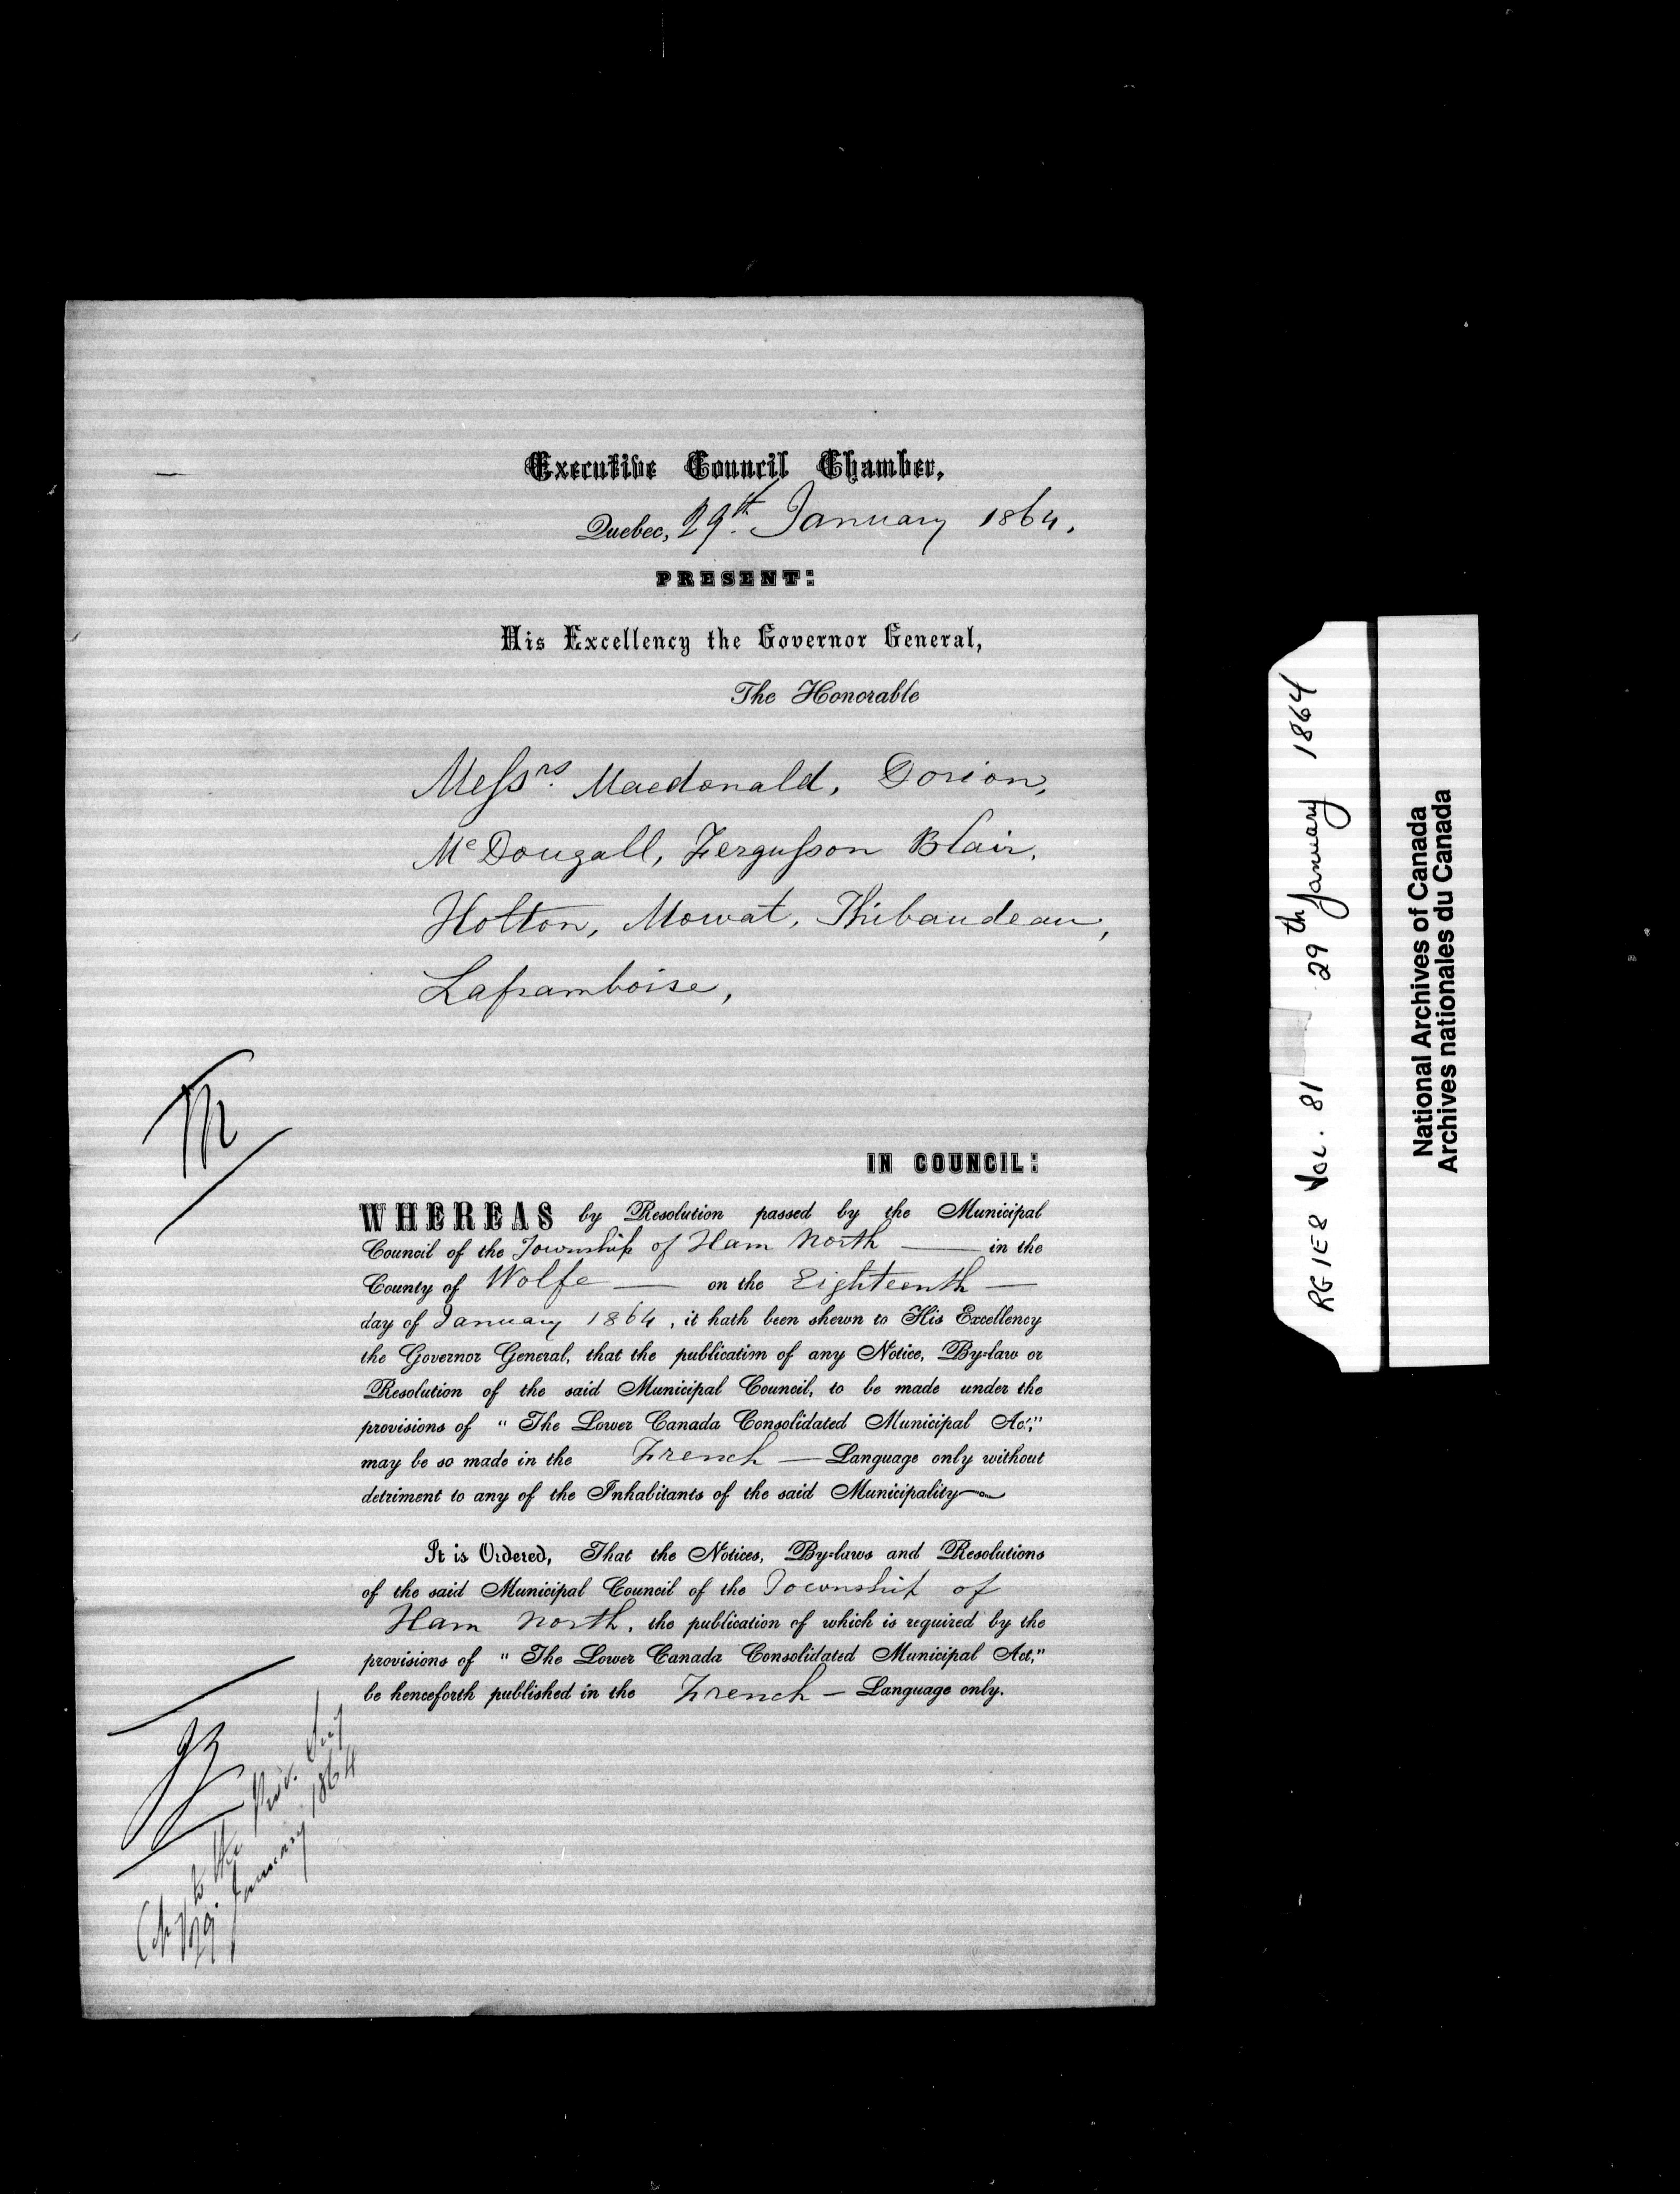 Executive Council Chamber,
Quebec, 29th. January 1864.
PRESENT:
His Excellency the Governor General,
The Honorable
Messrs. Macdonald, Dorion,
McDougall, Fergusson Blair,
Holton, Mowat, Thibaudeau,
Laframboise,
IN COUNCIL:
WHEREAS by Resolution passed by the Municipal
Council of the Township of Ham North — in the
County of Wolfe — on the Eighteenth —
day of January 1864, it hath been shewn to His Excellency
the Governor General, that the publication of any Notice, By-law or
Resolution of the said Municipal Council, to be made under the
provisions of "The Lower Canada Consolidated Municipal Act,"
may be so made in the French — Language only without
detriment to any of the Inhabitants of the said Municipality
It is Ordered, That the Notices, By-laws and Resolutions
of the said Municipal Council of the Township of
Ham North, the publication of which is required by the
provisions of "The Lower Canada Consolidated Municipal Act,"
be henceforth published in the French — Language only.
Copy to the Prov. Secy
29. January 1864
RG1E8 Vol. 81 29th January 1864
National Archives of Canada
Archives nationales du Canada